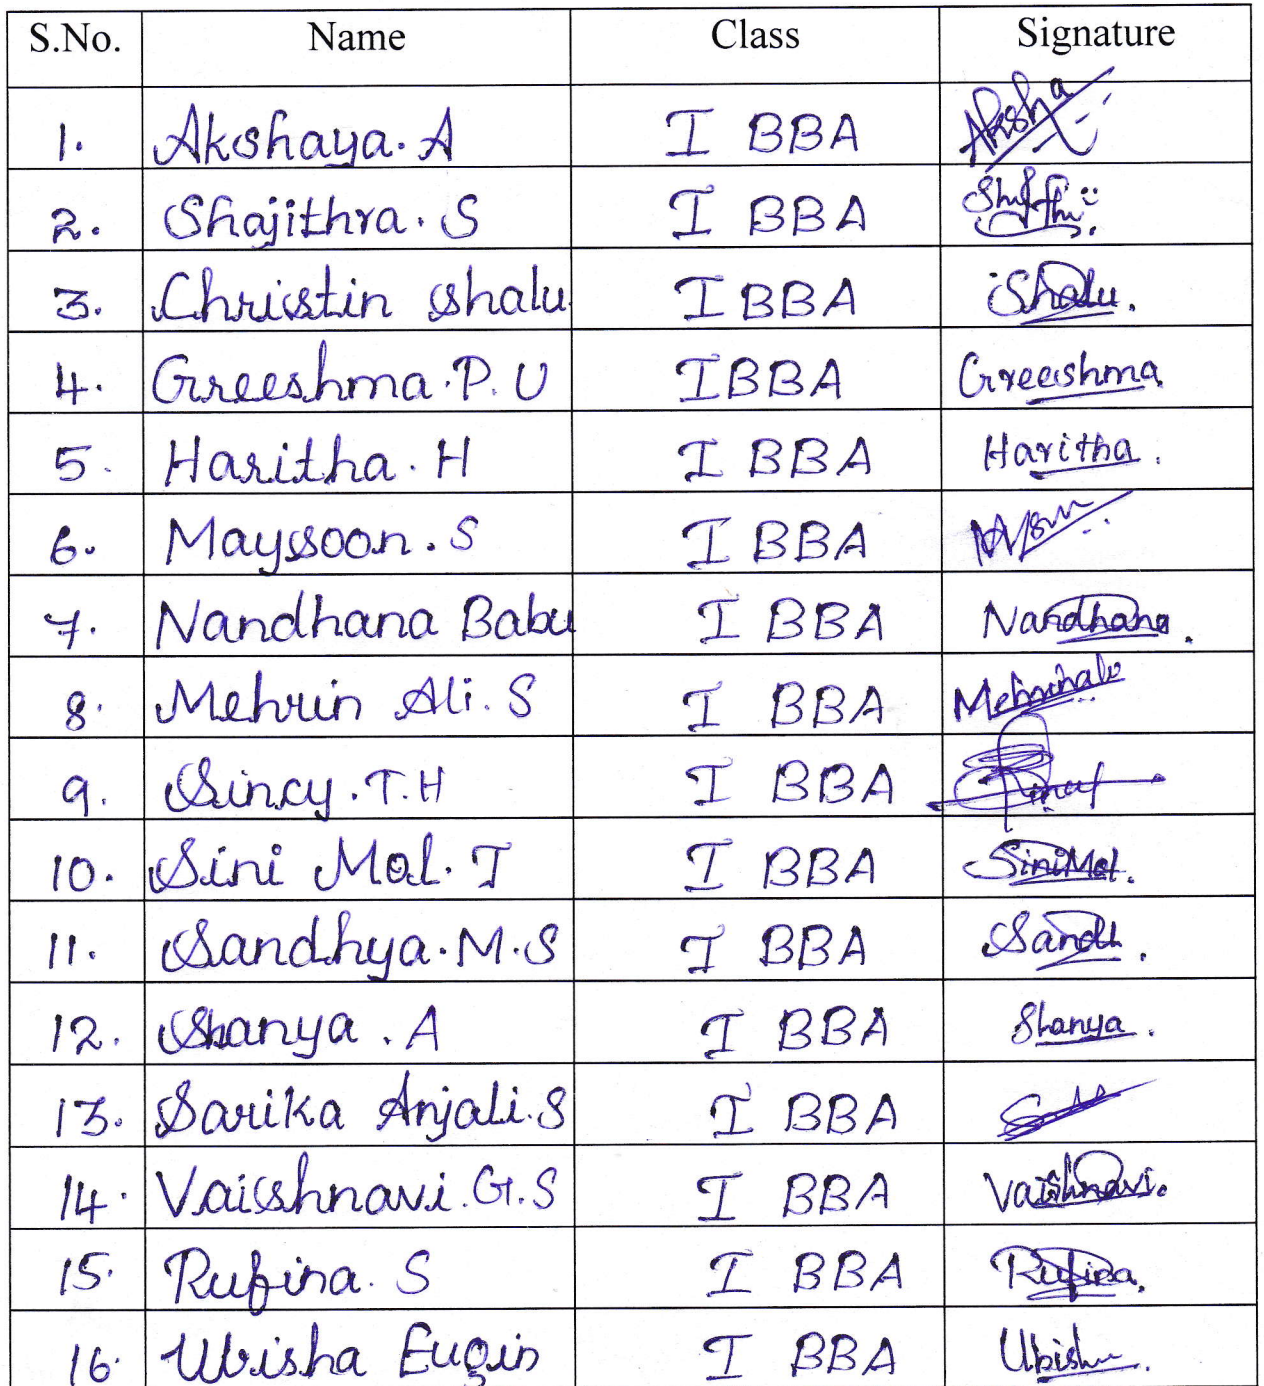 S.No. Name Class Signature
1. Akshaya. A I BBA Aksha
2. Shajithra. S I BBA
3. Christin shalu I BBA Shalu.
4. Greeshma. P. U I BBA Greeshma
5. Haritha. H I BBA Haritha.
6. Mayssoon. S I BBA
7. Nandhana Babu I BBA Nandhana.
8. Mehrin Ali. S I BBA
9. Sincy. T. H I BBA
10. Sini Mol. T I BBA SiniMol.
11. Sandhya. M. S I BBA Sandh.
12. Shanya. A I BBA Shanya.
13. Sarika Anjali. S I BBA
14. Vaishnavi. G. S I BBA Vaishnavi.
15. Rufina. S I BBA Rufina.
16. Ubisha Eugin I BBA Ubisha.